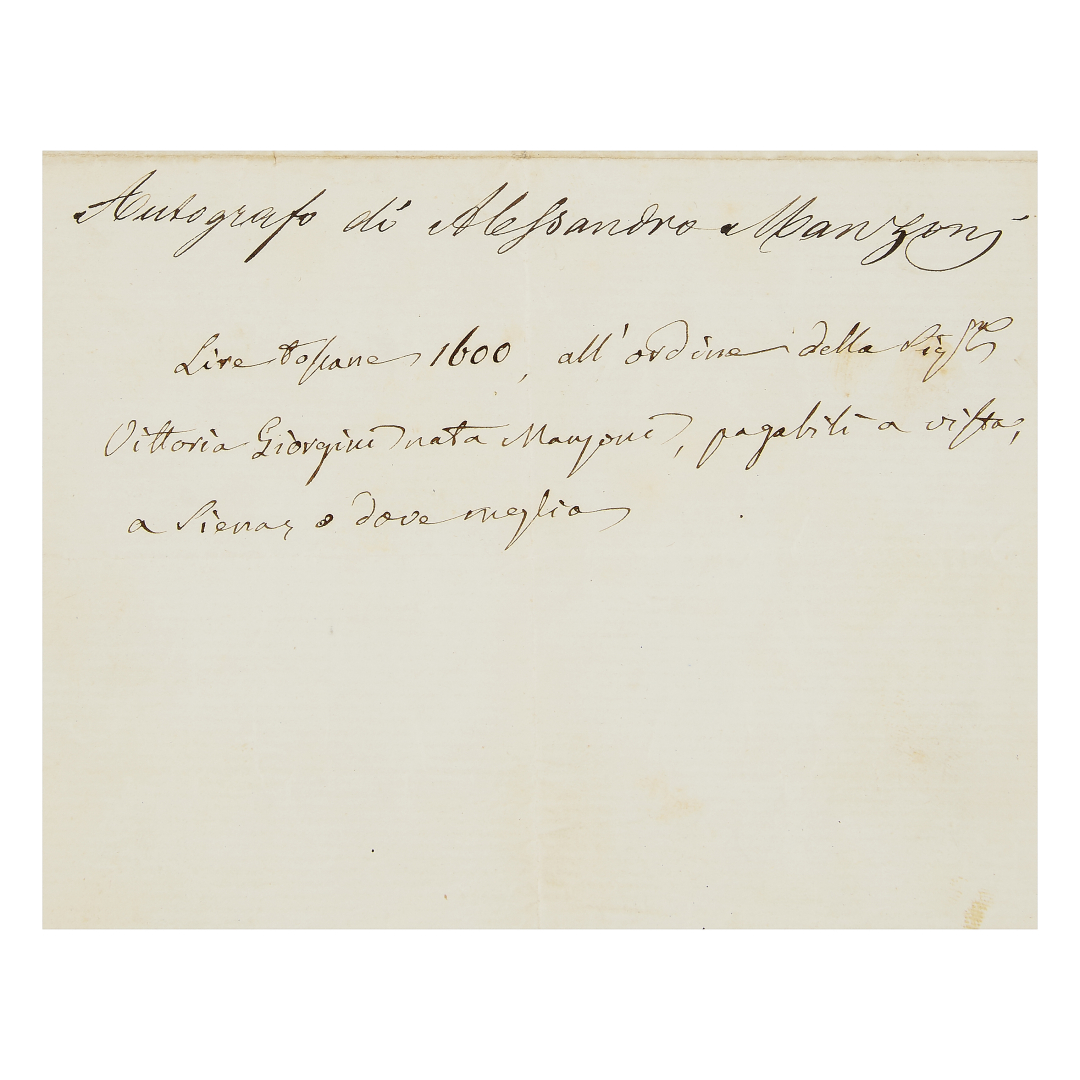 Autografo di Alessandro Manzoni
Lire toscane 1600, all'ordine della Sig.ra
Vittoria Giorgini nata Manzoni, pagabili a vista,
a Siena, o dove meglio